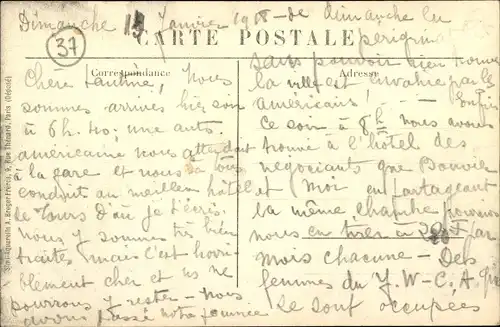 Dimanche 13 Janvier 1918 - de dimanche
37
CARTE POSTALE
Correspondance
Adresse
Chère Pauline, Nous
sommes arrivés hier soir
à 6h.40; une auto
américaine nous attendait
à la gare et nous a tous
conduit au meilleur hôtel
de Tours d'où je t'écris.
nous y sommes très bien
traités mais c'est horri-
blement cher et ns ne
pourrons y rester - Nous
avons passé notre journée
sans pouvoir rien trouver
la ville est envahie par les
américains! Enfin
ce soir à 8h nous avons
trouvé à l'hôtel des
négociants que Bouvier
et moi en partageant
la même chambre pouvions
nous en tirer à par
mois chacune - Des
femmes du Y.W.C.A.
se sont occupées
Aquarelle A. Breger Frères, 9, Rue Thénard, Paris (Déposé)